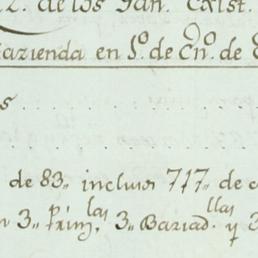 2. de los Gan. Exist.
azienda en 1.º de En.º de
s
de 83,, inclusos 717,, de c
3,, Prim.las 3,, Bariad.llas y 3